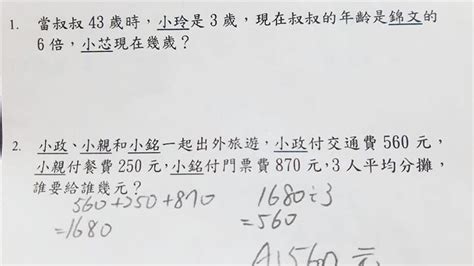 1. 當叔叔 43 歲時,小玲是 3 歲,現在叔叔的年齡是錦文的
6 倍,小芯現在幾歲?
2. 小政、小親和小銘一起出外旅遊,小政付交通費 560 元,
小親付餐費 250 元,小銘付門票費 870 元,3 人平均分攤,
誰要給誰幾元?
560+250+870
=1680
1680÷3
=560
A:560元